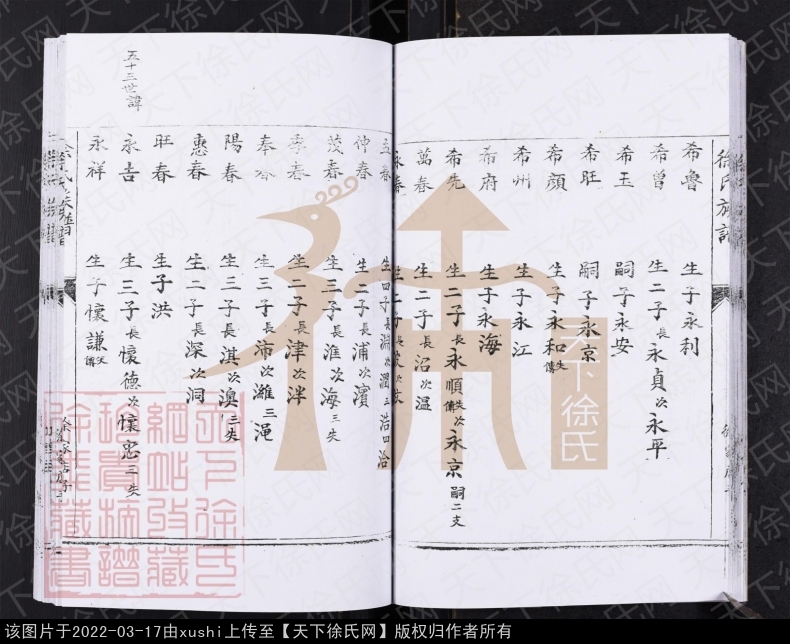 徐氏族譜
希魯 生子永利
希曾 生二子長永貞次永平
希玉 嗣子永安
希旺 嗣子永京
希顔 生子永和失傳
希州 生子永江
希府 生子永海
希先 生二子長永順失傳次永京嗣二支
萬春 生二子長沼次温
永春 生二子長
立春 生四子長 次潤三浩四治
仲春 生二子長浦次濱
茂春 生三子長淮次海三失
季春 生二子長津次泮
奉春 生三子長沛次濰三渑
陽春 生三子長淇次澳三失
惠春 生二子長深次洞
旺春 生子洪
永吉 生三子長懷德次懷宽三失
永祥 生子懷謙失傳
五十三世諱
徐氏族譜
天下徐氏
天下徐氏網站收藏
珍貴族譜
徐雁藏書
该图片于2022-03-17由xushi上传至【天下徐氏网】版权归作者所有